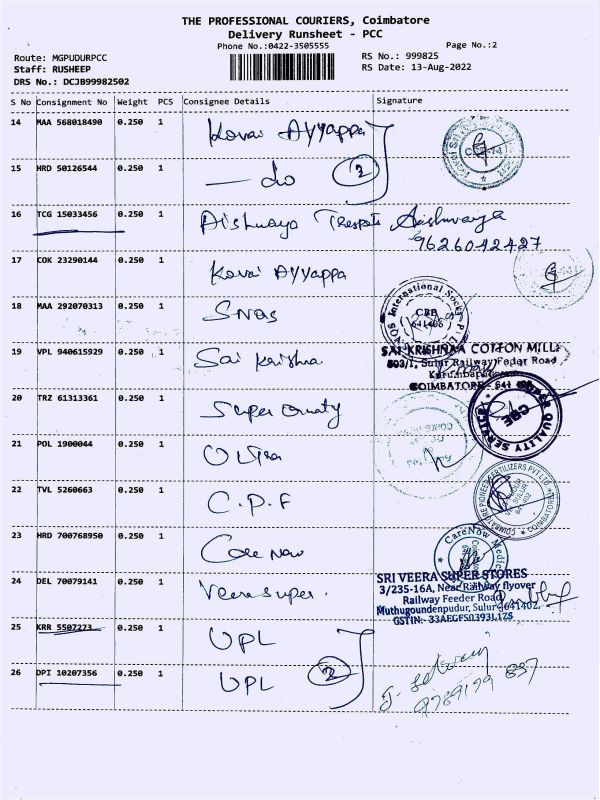 THE PROFESSIONAL COURIERS, Coimbatore
Delivery Runsheet - PCC
Phone No.:0422-3505555
Page No.:2
Route: MGPUDURPCC
RS No.: 999825
Staff: RUSHEEP
RS Date: 13-Aug-2022
DRS No.: DCJB99982502
S No Consignment No Weight PCS Consignee Details Signature
14 MAA 568018490 0.250 1 Kovai Ayyappa
15 HRD 50126544 0.250 1 — do 2
16 TCG 15033456 0.250 1 Aishwarya
9626042427
17 COK 23290144 0.250 1 Kovai Ayyappa
18 MAA 292070313 0.250 1 SNOS
International Socks P. L
CBE
641406
19 VPL 940615929 0.250 1 Sai Krishna
SAI KRISHNAA COTTON MILL
803/1, Sulur Railway Feder Road
COIMBATORE - 641
20 TRZ 61313361 0.250 1 Super
QUALITY
CBE
21 POL 1900044 0.250 1 Ultra
22 TVL 5260663 0.250 1 C.P.F
COIMBATORE PIONEER FERTILIZERS PVT LTD
COIMBATORE
23 HRD 700768950 0.250 1 Care Now
CareNow Medic
24 DEL 70079141 0.250 1 Veera Super.
SRI VEERA SUPER STORES
3/235-16A, Near Railway flyover
Railway Feeder Road
Muthugoundenpudur, Sulur-641402.
GSTIN:- 33AEGFS0393L1ZS
25 KRR 5507273 0.250 1 UPL
26 DPI 10207356 0.250 1 UPL 2